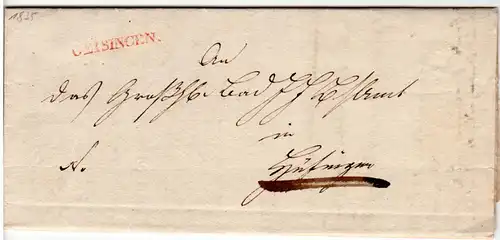 1835
GEISINGEN.
An
das Großh. Bad. F. F. B. Amt
in
N. Hüfingen